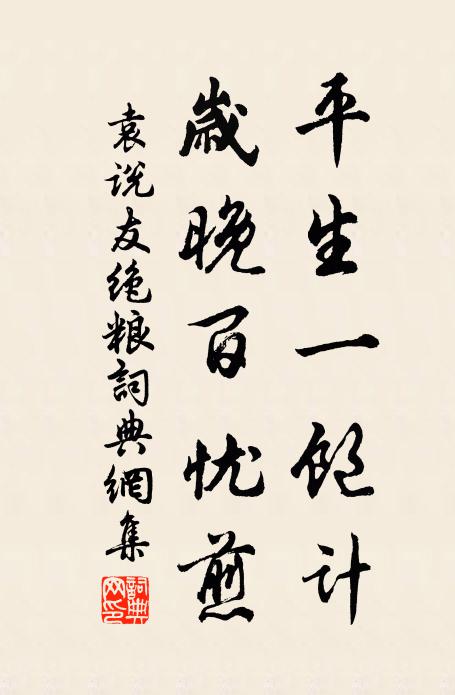 平生一饱计
歲晚百忧煎
袁说友绝粮詞典網集
詞典网印